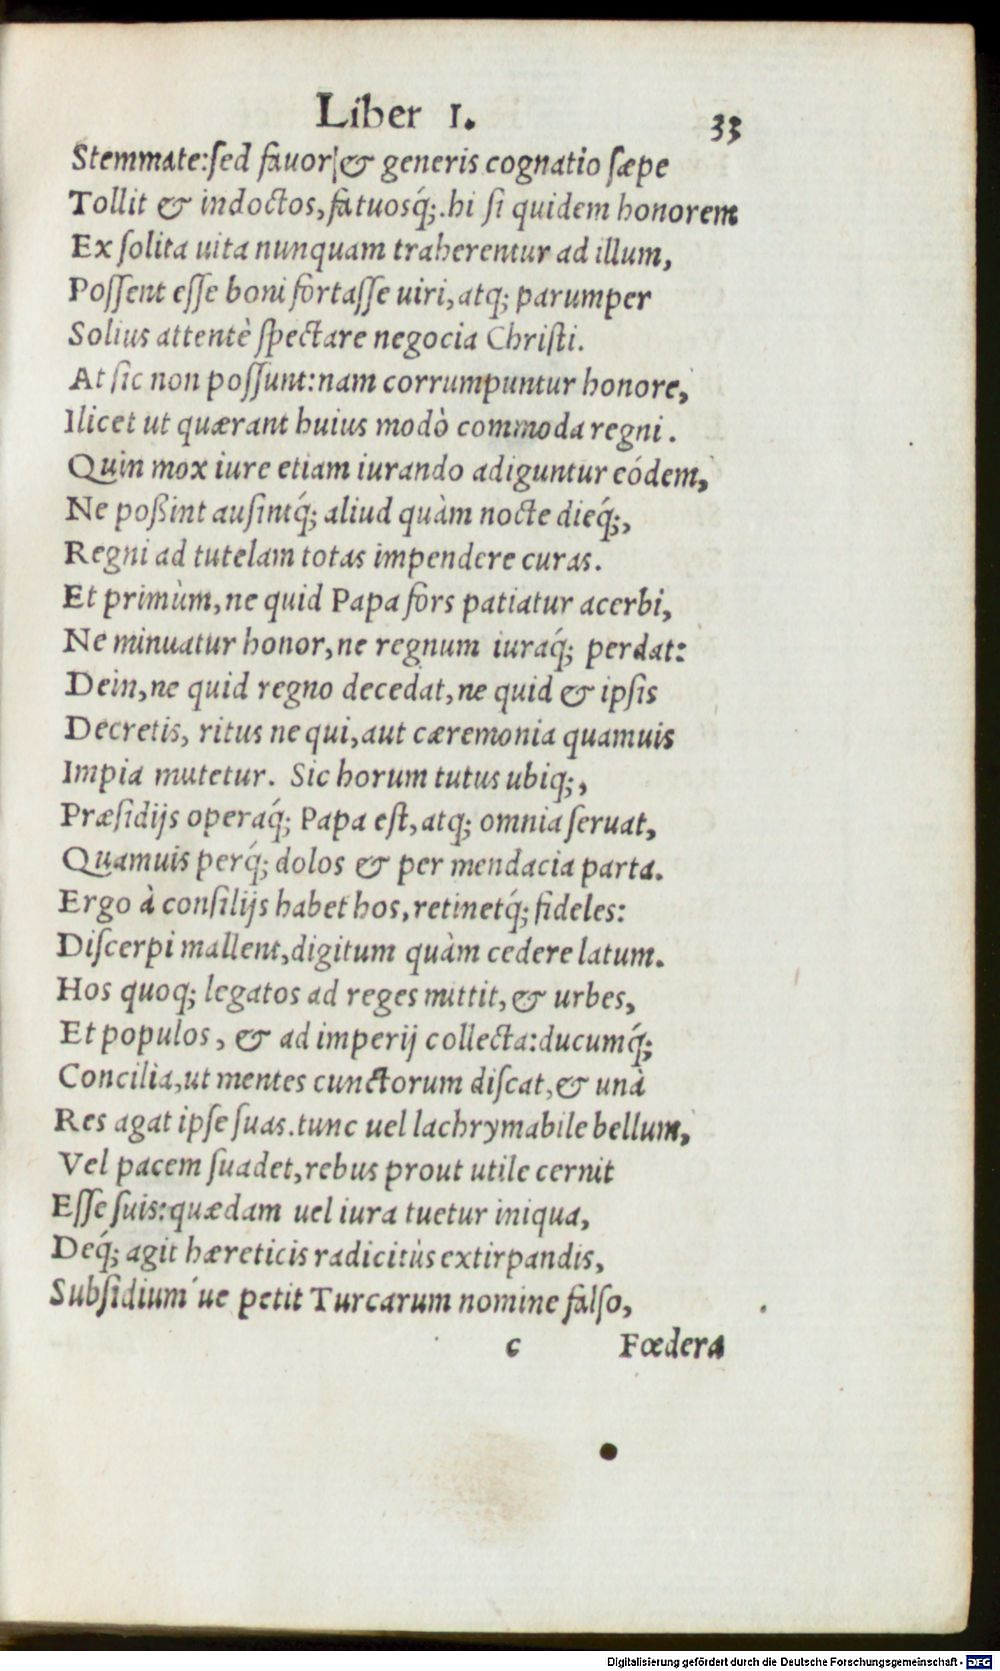 Liber 1.
33
Stemmate:sed fauor|& generis cognatio sæpe
Tollit & indoctos, fatuosq́;. hi si quidem honorem
Ex solita uita nunquam traherentur ad illum,
Possent esse boni fortasse uiri, atq; parumper
Solius attentè spectare negocia Christi.
At sic non possunt: nam corrumpuntur honore,
Ilicet ut quærant huius modò commoda regni.
Quin mox iure etiam iurando adiguntur eódem,
Ne poßint ausintq́; aliud quàm nocte dieq́;,
Regni ad tutelam totas impendere curas.
Et primùm, ne quid Papa fors patiatur acerbi,
Ne minuatur honor, ne regnum iuraq́; perdat:
Dein, ne quid regno decedat, ne quid & ipsis
Decretis, ritus ne qui, aut cæremonia quamuis
Impia mutetur. Sic horum tutus ubiq;,
Præsidijs operaq́; Papa est, atq; omnia seruat,
Quamuis perq́; dolos & per mendacia parta.
Ergo à consilijs habet hos, retinetq́; fideles:
Discerpi mallent, digitum quàm cedere latum.
Hos quoq; legatos ad reges mittit, & urbes,
Et populos, & ad imperij collecta: ducumq́;
Concilia, ut mentes cunctorum discat, & unà
Res agat ipse suas. tunc uel lachrymabile bellum,
Vel pacem suadet, rebus prout utile cernit
Esse suis: quædam uel iura tuetur iniqua,
Deq́; agit hæreticis radicitùs extirpandis,
Subsidium ́ue petit Turcarum nomine falso,
c
Fœdera
Digitalisierung gefördert durch die Deutsche Forschungsgemeinschaft - DFG